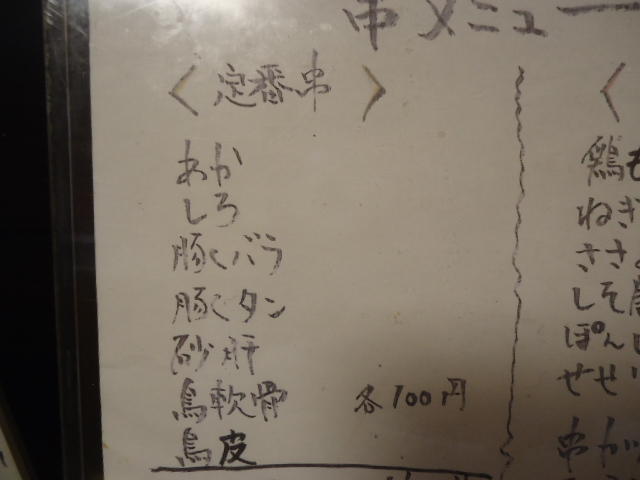 串メニュー
〈定番串〉
あか
しろ
豚バラ
豚タン
砂肝
鳥軟骨 各100円
鳥皮
〈
鶏も
ねぎ
ささ
しそ
ぽん
せせり
串カ